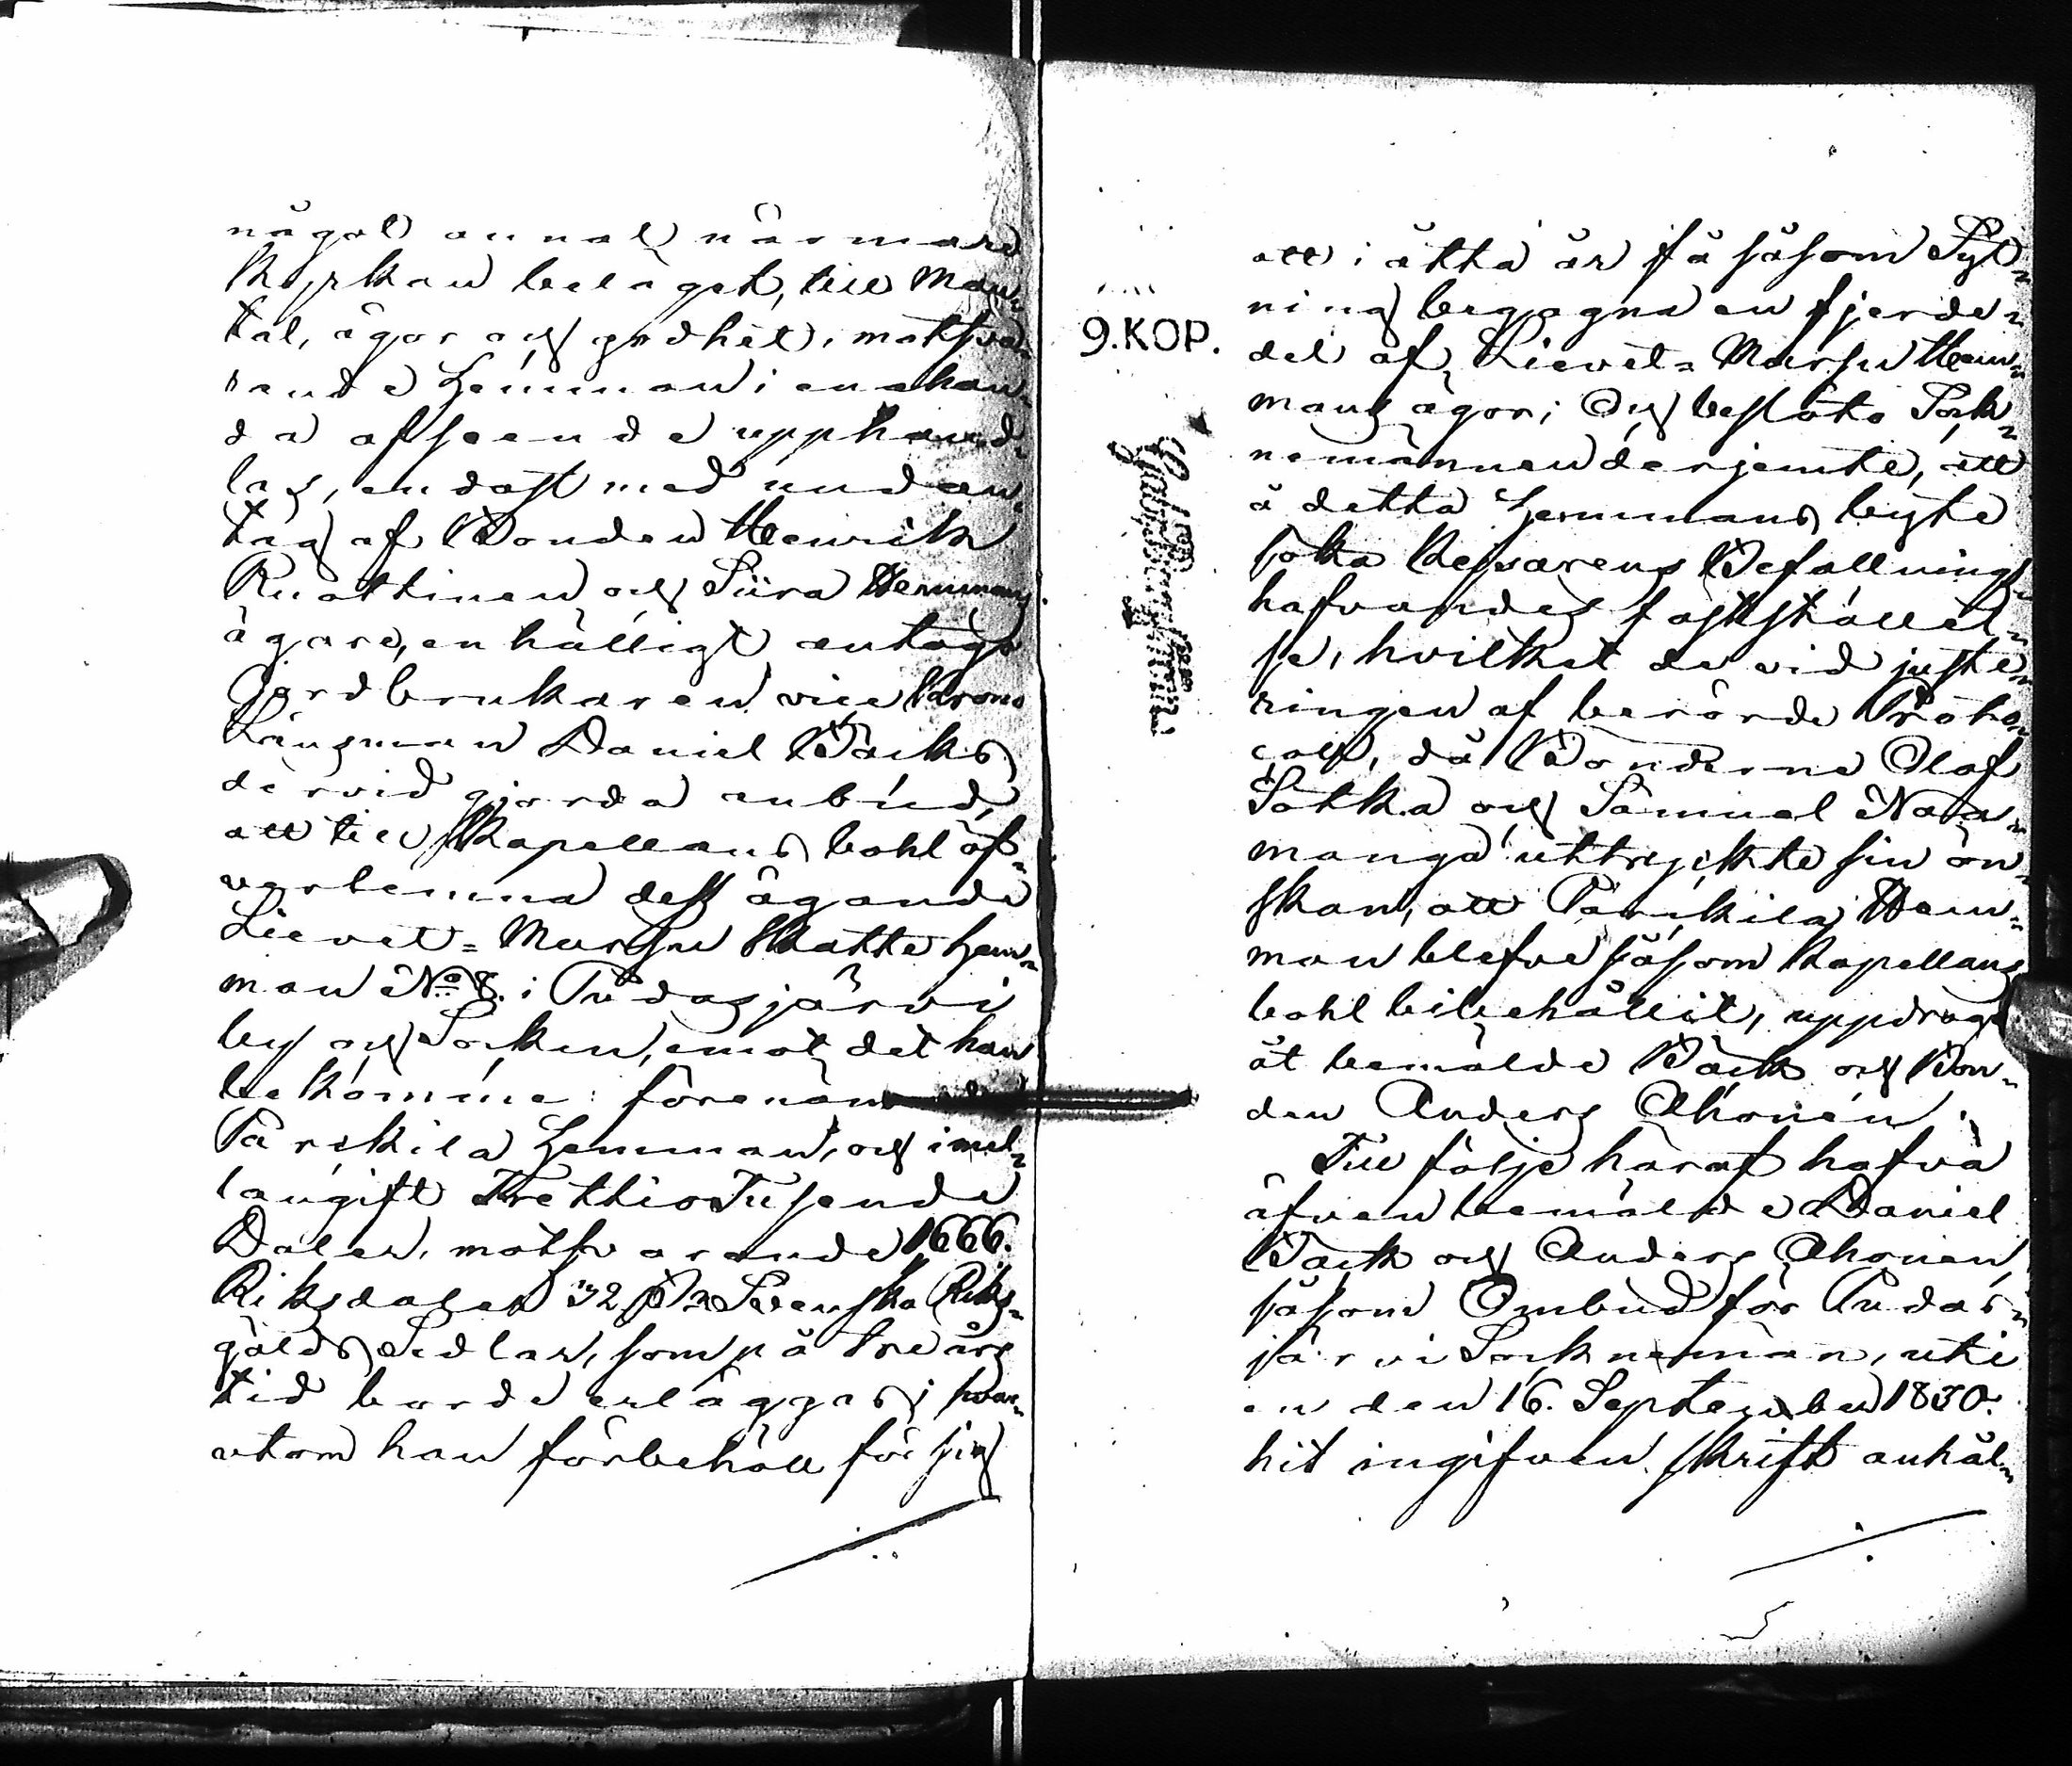 något annat närmare
Kyrkan beläget, till Man=
tal, ägor och godhet, motsva=
rande Hemman i enahan=
da afseende upphand=
las, endast med undan=
tag af Bonden Henrik
Ruottinen och Siira Hemmans
ägare, enhälligt antogo
Jordbrukaren vice Krono
Länsman Daniel Bäcks
dervid gjorda anbud,
att till Kapellans bohl öf=
verlemna dess ägande
Lievet=Mursu Skatte hem=
man No 8. i Pudasjärvi
by och Socken, emot det han
bekomme förenämnde
Pärskilä Hemman, och i mel=
langift Trettio Tusende
Daler, motsvarande 1666.
Riksdaler 32 s. Svenska Riks=
gälds Sedlar, som på tre års
tid borde erläggas; hvar=
utom han förbehöll för sig
att i åtta år få såsom Syt=
ning begagna en fjerde=
del af Lievet=Mursu Hem=
mans ägor; Och beslöto Sock=
nemännen derjemte, att
å detta Hemmans byte
söka Kejsarens Befallnings=
hafvandes fastställel=
se, hvilket de vid juste=
ringen af berörde Proto=
coll, då Bönderne Olof
Sotka och Samuel Naa=
manga uttryckte sin ön=
skan, att Pärskilä Hem=
man blefve såsom Kapellans
bohl bibehållit, uppdrogo
åt bemälde Bäck och Bon=
den Anders Ahonen.
Till följe häraf hafva
äfvenbemälde Daniel
Bäck och Anders Ahonen,
såsom Ombud för Pudas=
järvi Socknemän, uti
en den 16. September 1830.
hit ingifven skrift anhål=
9.KOP.